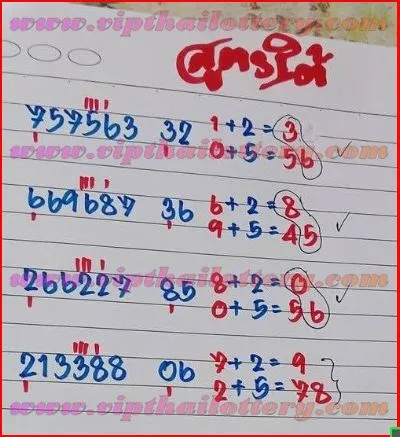 www.vipthailottery.com
สูตรวิ่งได้
757563 32 1+2=3
0+5=56
www.vipthailottery.com
669687 36 6+2=8
9+5=45
www.vipthailottery.com
266227 85 8+2=0
0+5=56
www.vipthailottery.com
213388 06 7+2=9
2+5=78
www.vipthailottery.com